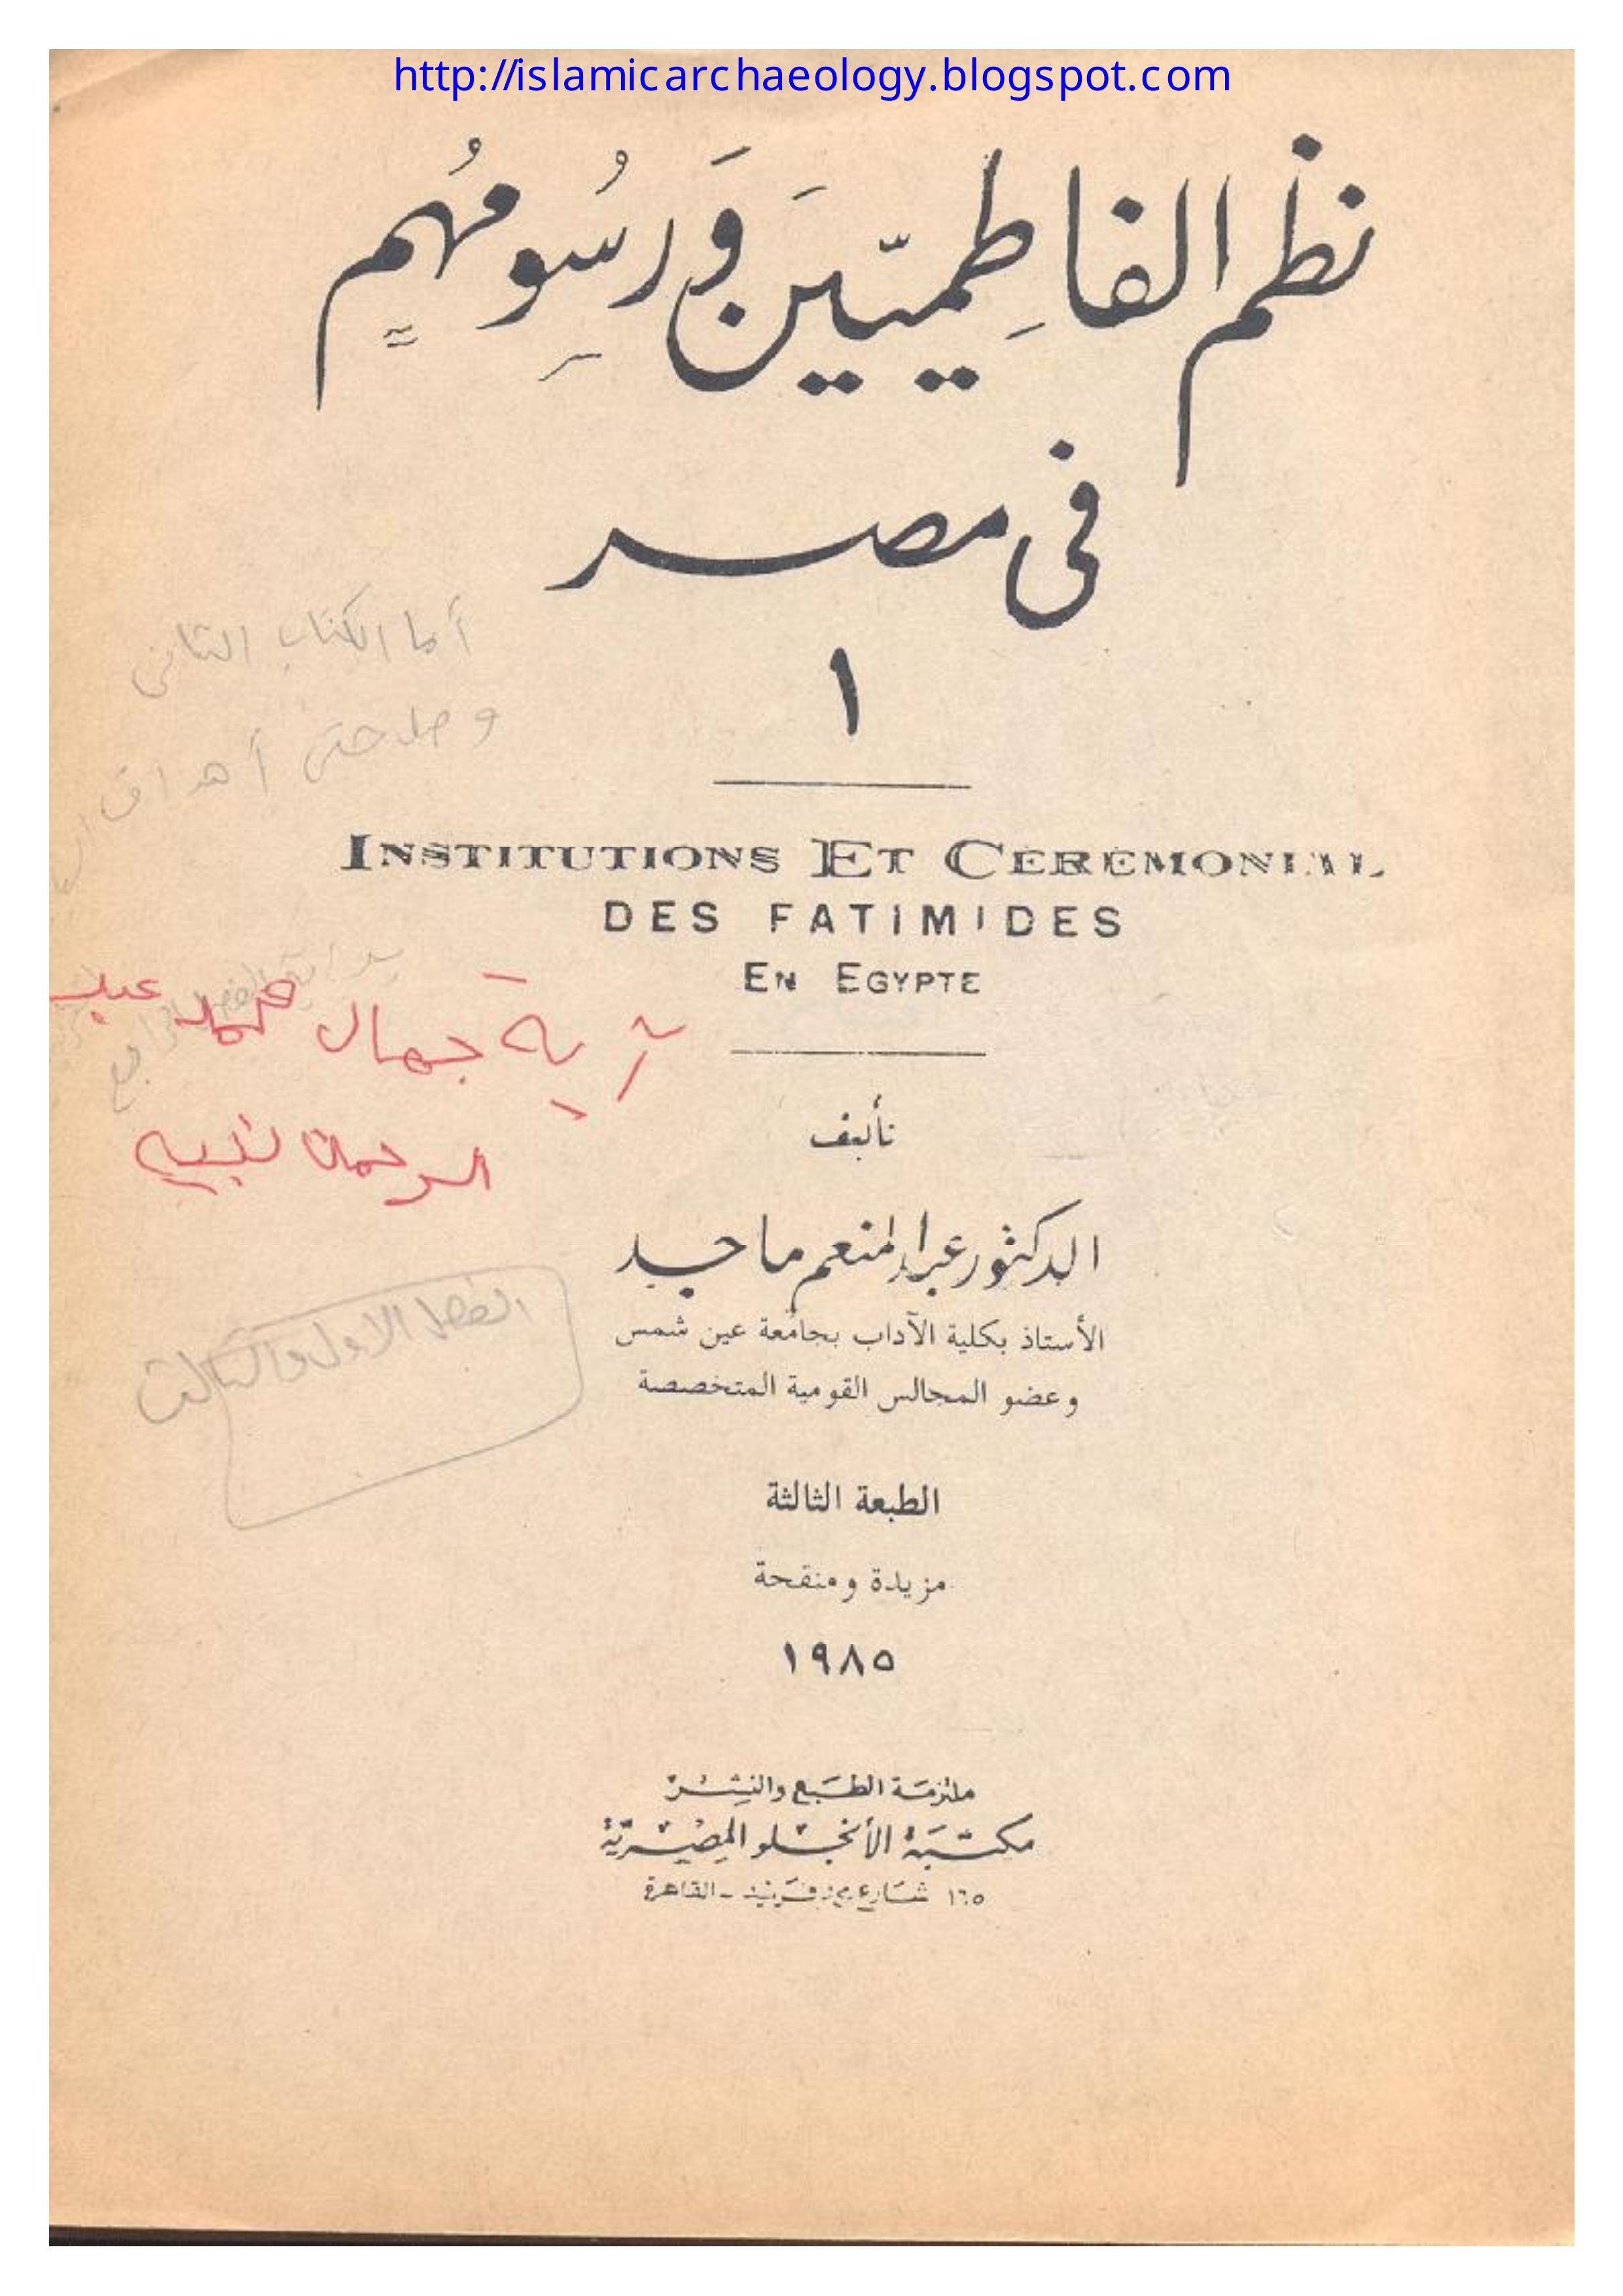 http://islamicarchaeology.blogspot.com
نظم الفاطميين ورسومهم
فى مصر
١
أما الكتاب الثانى
أهداف
INSTITUTIONS ET CÉRÉMONIAL
DES FATIMIDES
EN EGYPTE
آية جمال محمد عبد
الرحمن
تأليف
الدكتور عبد المنعم ماجد
الأستاذ بكلية الآداب بجامعة عين شمس
وعضو المجالس القومية المتخصصة
الفصل الاول والثالث
الطبعة الثالثة
مزيدة ومنقحة
١٩٨٥
ملتزمة الطبع والنشر
مكتبة الأنجلو المصرية
١٦٥ شارع محمد فريد - القاهرة